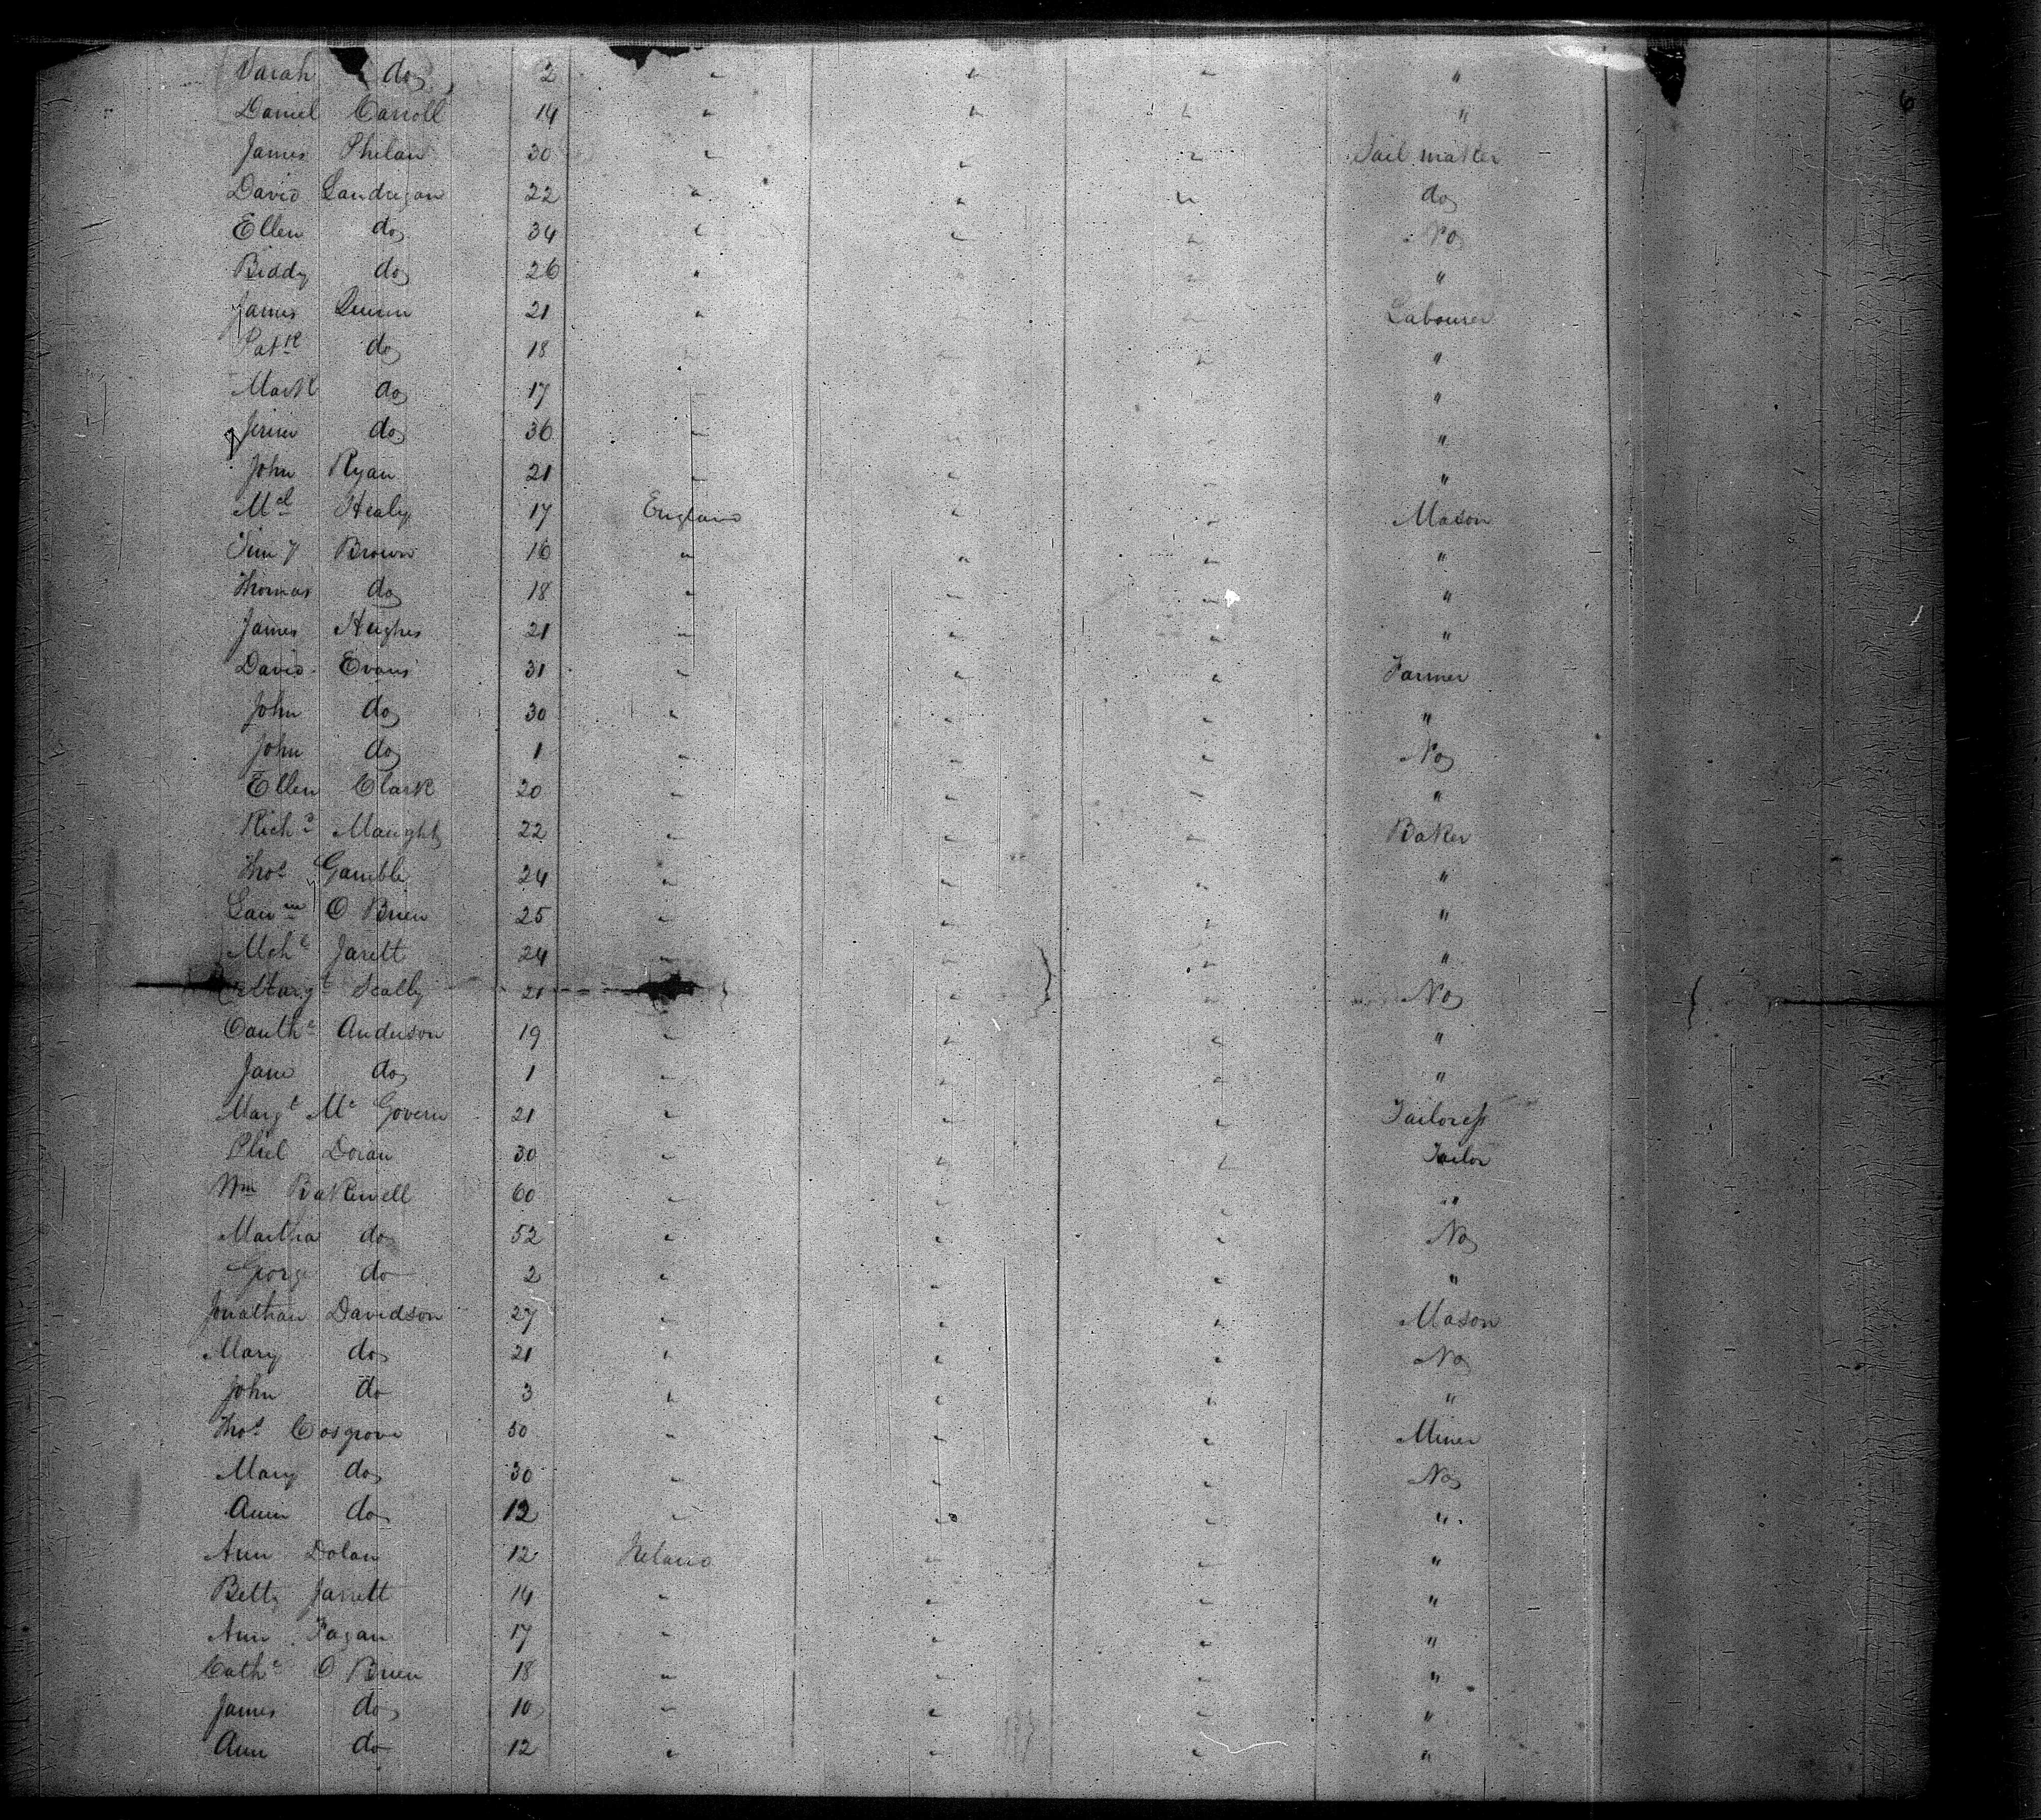 6
Sarah do 2 " " " "
Daniel Carroll 14 " " " "
James Phelan 30 " " " Sail maker
David Landrigan 22 " " " do
Ellen do 34 " " " No
Biddy do 26 " " "
James Quinn 21 " " Labourer
Patk do 18 " "
Mark do 17 " "
do 36 " " " "
John Ryan 21 " " "
Ml Healy 17 England " " Mason
Timy Brown 16 " " " "
Thomas do 18 " " " "
James Hughes 21 " " " "
David Evans 31 " " " Farmer
John do 30 " " " "
John do 1 " " " No
Ellen Clark 20 " " " "
Richd 22 " " " Baker
Thos Gamble 24 " " " "
O Brien 25 " " " "
Mchl Jarett 24 " " " "
Margt Scally 21 " " No
Cauthe Anderson 19 " " " "
Jane do 1 " " " "
Margt Mc Govern 21 " " " Tailoress
Phil Doran 30 " " " Tailor
Wm Bakewell 60 " " " "
Martha do 52 " " " No
George do 2 " " " "
Jonathan Davidson 27 " " " Mason
Mary do 21 " " " No
John do 3 " " " "
Thos Cosgrove 50 " " " Miner
Mary do 30 " " " No
Ann do 12 " " " "
Ann Dolan 12 Ireland " " "
Betty Jarrett 14 " " " "
Ann Fagan 17 " " " "
Cathe O Brien 18 " " " "
James do 10 " " " "
Ann do 12 " " " "